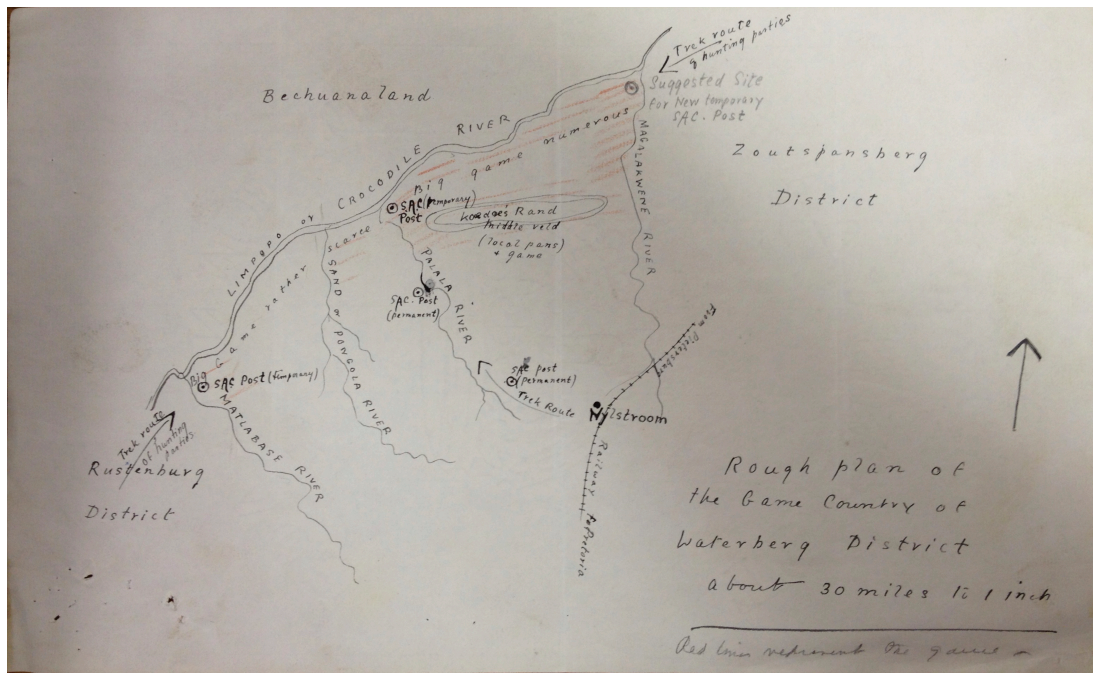 Trek route
of hunting parties
Suggested Site
for New temporary
SAC. Post
Bechuanaland
LIMPOPO or CROCODILE RIVER
Big game numerous
MAGALAKWENE RIVER
Zoutspansberg
District
SAC (temporary)
Post
Koedoe's Rand
Middle veld
(local pans)
+ game
Big Game rather scarce
SAND or PONGOLA RIVER
PALALA RIVER
SAC. Post
(permanent)
SAC post
(permanent)
Trek Route
From Pietersburg
Nylstroom
Railway to Pretoria
SAC Post (temporary)
MATLABASE RIVER
Trek route
of hunting
parties
Rustenburg
District
Rough plan of
the Game Country of
Waterberg District
about 30 miles to 1 inch
Red lines represent the game